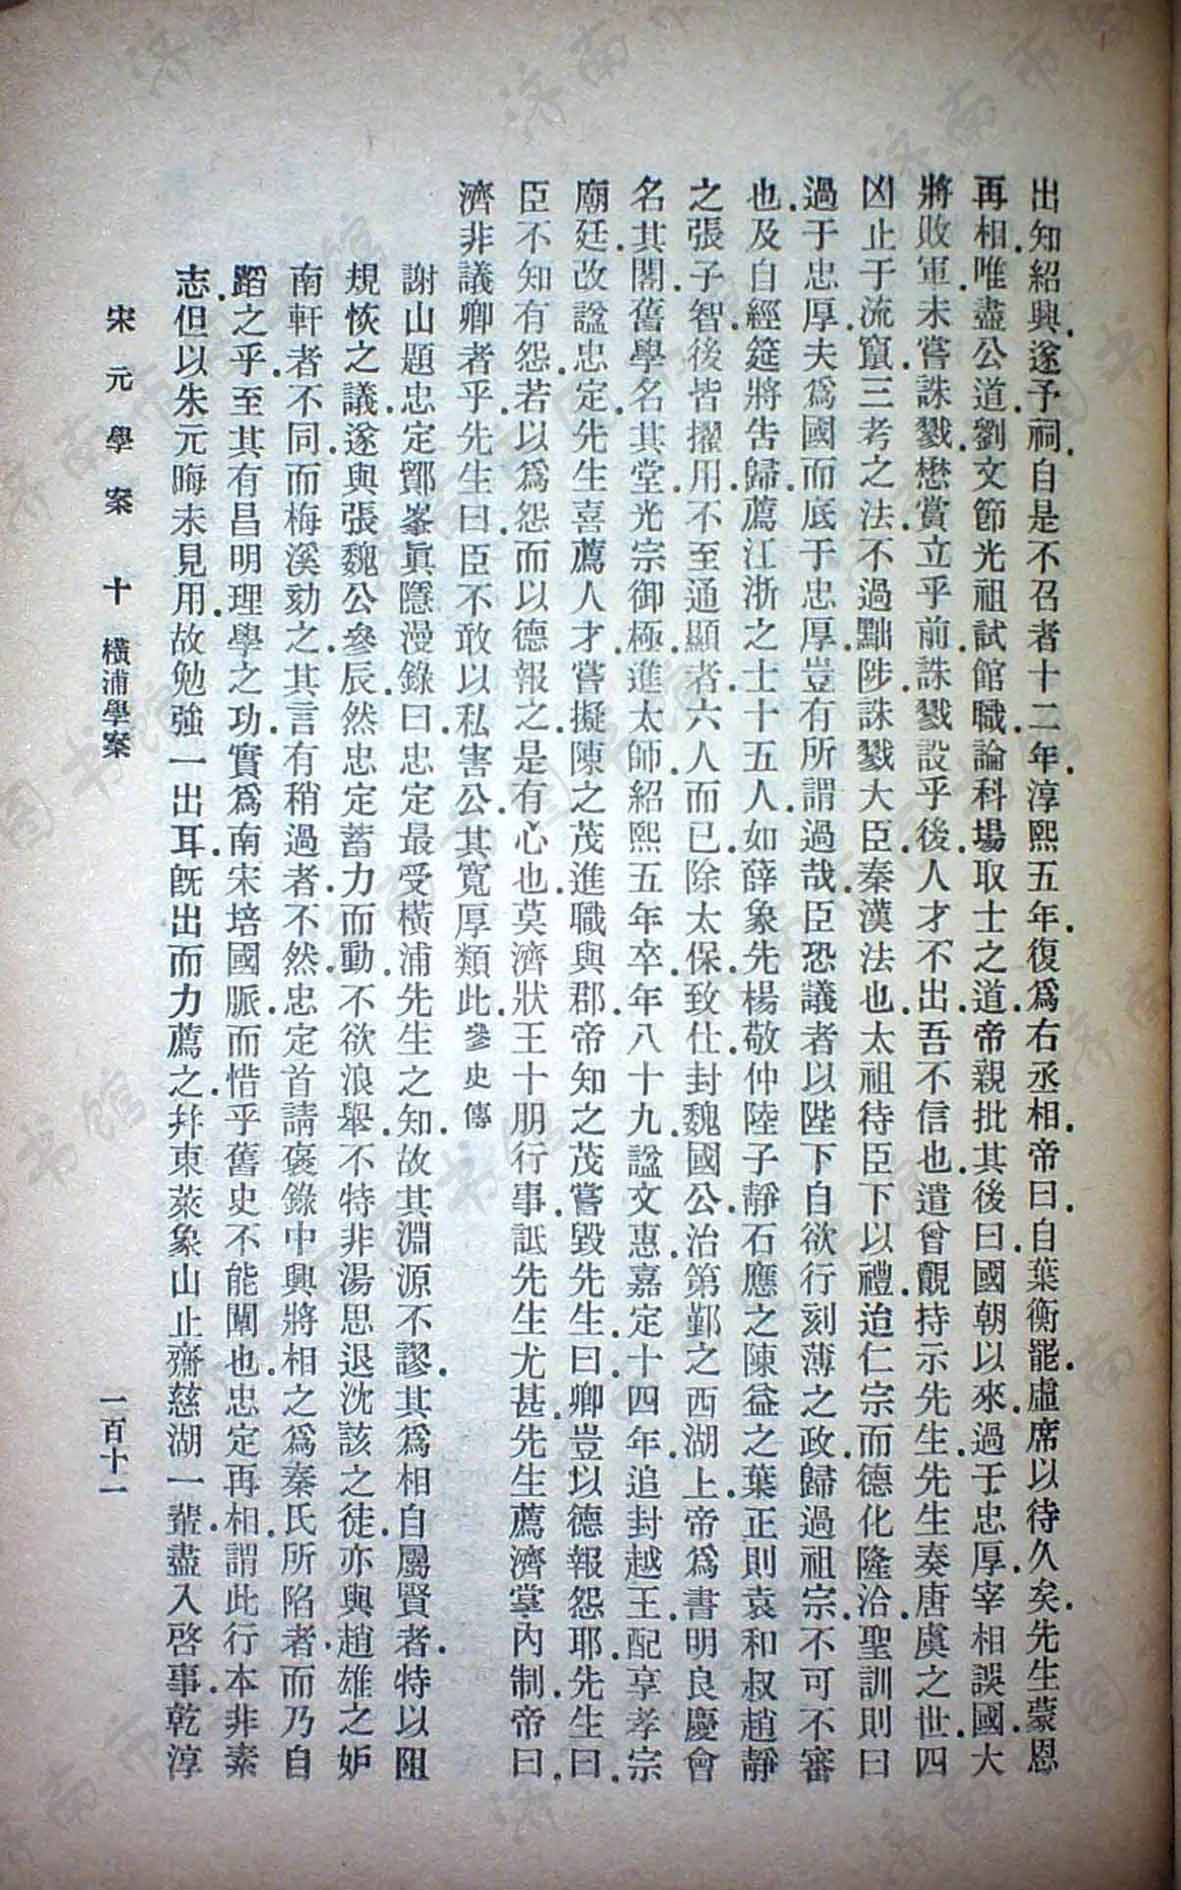 出知紹興．遂予祠．自是不召者十二年．淳熙五年．復爲右丞相．帝曰．自葉衡罷．虛席以待久矣．先生蒙恩
再相．唯盡公道．劉文節光祖試館職．論科場取士之道．帝親批其後曰．國朝以來．過于忠厚．宰相誤國．大
將敗軍．未嘗誅戮．懋賞立乎前．誅戮設乎後．人才不出．吾不信也．遣曾覿持示先生．先生奏唐虞之世．四
凶止于流竄．三考之法．不過黜陟．誅戮大臣．秦漢法也．太祖待臣下以禮．迨仁宗而德化隆洽．聖訓則曰
過于忠厚．夫爲國而底于忠厚．豈有所謂過哉．臣恐議者以陛下自欲行刻薄之政．歸過祖宗．不可不審
也．及自經筵將告歸．薦江浙之士十五人．如薛象先．楊敬仲．陸子靜．石應之．陳益之．葉正則．袁和叔．趙靜
之．張子智．後皆擢用．不至通顯者六人而已．除太保．致仕．封魏國公．治第鄞之西湖上．帝爲書明良慶會
名其閣．舊學名其堂．光宗御極．進太師．紹熙五年卒．年八十九．諡文惠．嘉定十四年．追封越王．配享孝宗
廟廷．改諡忠定．先生喜薦人才．嘗擬陳之茂進職與郡．帝知之茂嘗毀先生．曰．卿豈以德報怨耶．先生曰．
臣不知有怨．若以爲怨而以德報之．是有心也．莫濟狀王十朋行事．詆先生尤甚．先生薦濟掌內制．帝曰．
濟非議卿者乎．先生曰．臣不敢以私害公．其寬厚類此．參史傳
謝山題忠定鄮峯眞隱漫錄曰．忠定最受橫浦先生之知．故其淵源不謬．其爲相．自屬賢者．特以阻
規恢之議．遂與張魏公參辰．然忠定蓄力而動．不欲浪舉．不特非湯思退沈該之徒．亦與趙雄之妒
南軒者不同．而梅溪劾之．其言有稍過者．不然．忠定首請褒錄中興將相之爲秦氏所陷者．而乃自
蹈之乎．至其有昌明理學之功．實爲南宋培國脈．而惜乎舊史不能闡也．忠定再相．謂此行本非素
志．但以朱元晦未見用．故勉強一出耳．旣出而力薦之．幷東萊象山止齋慈湖一輩．盡入啓事．乾淳
宋元學案　十　橫浦學案
一百十一